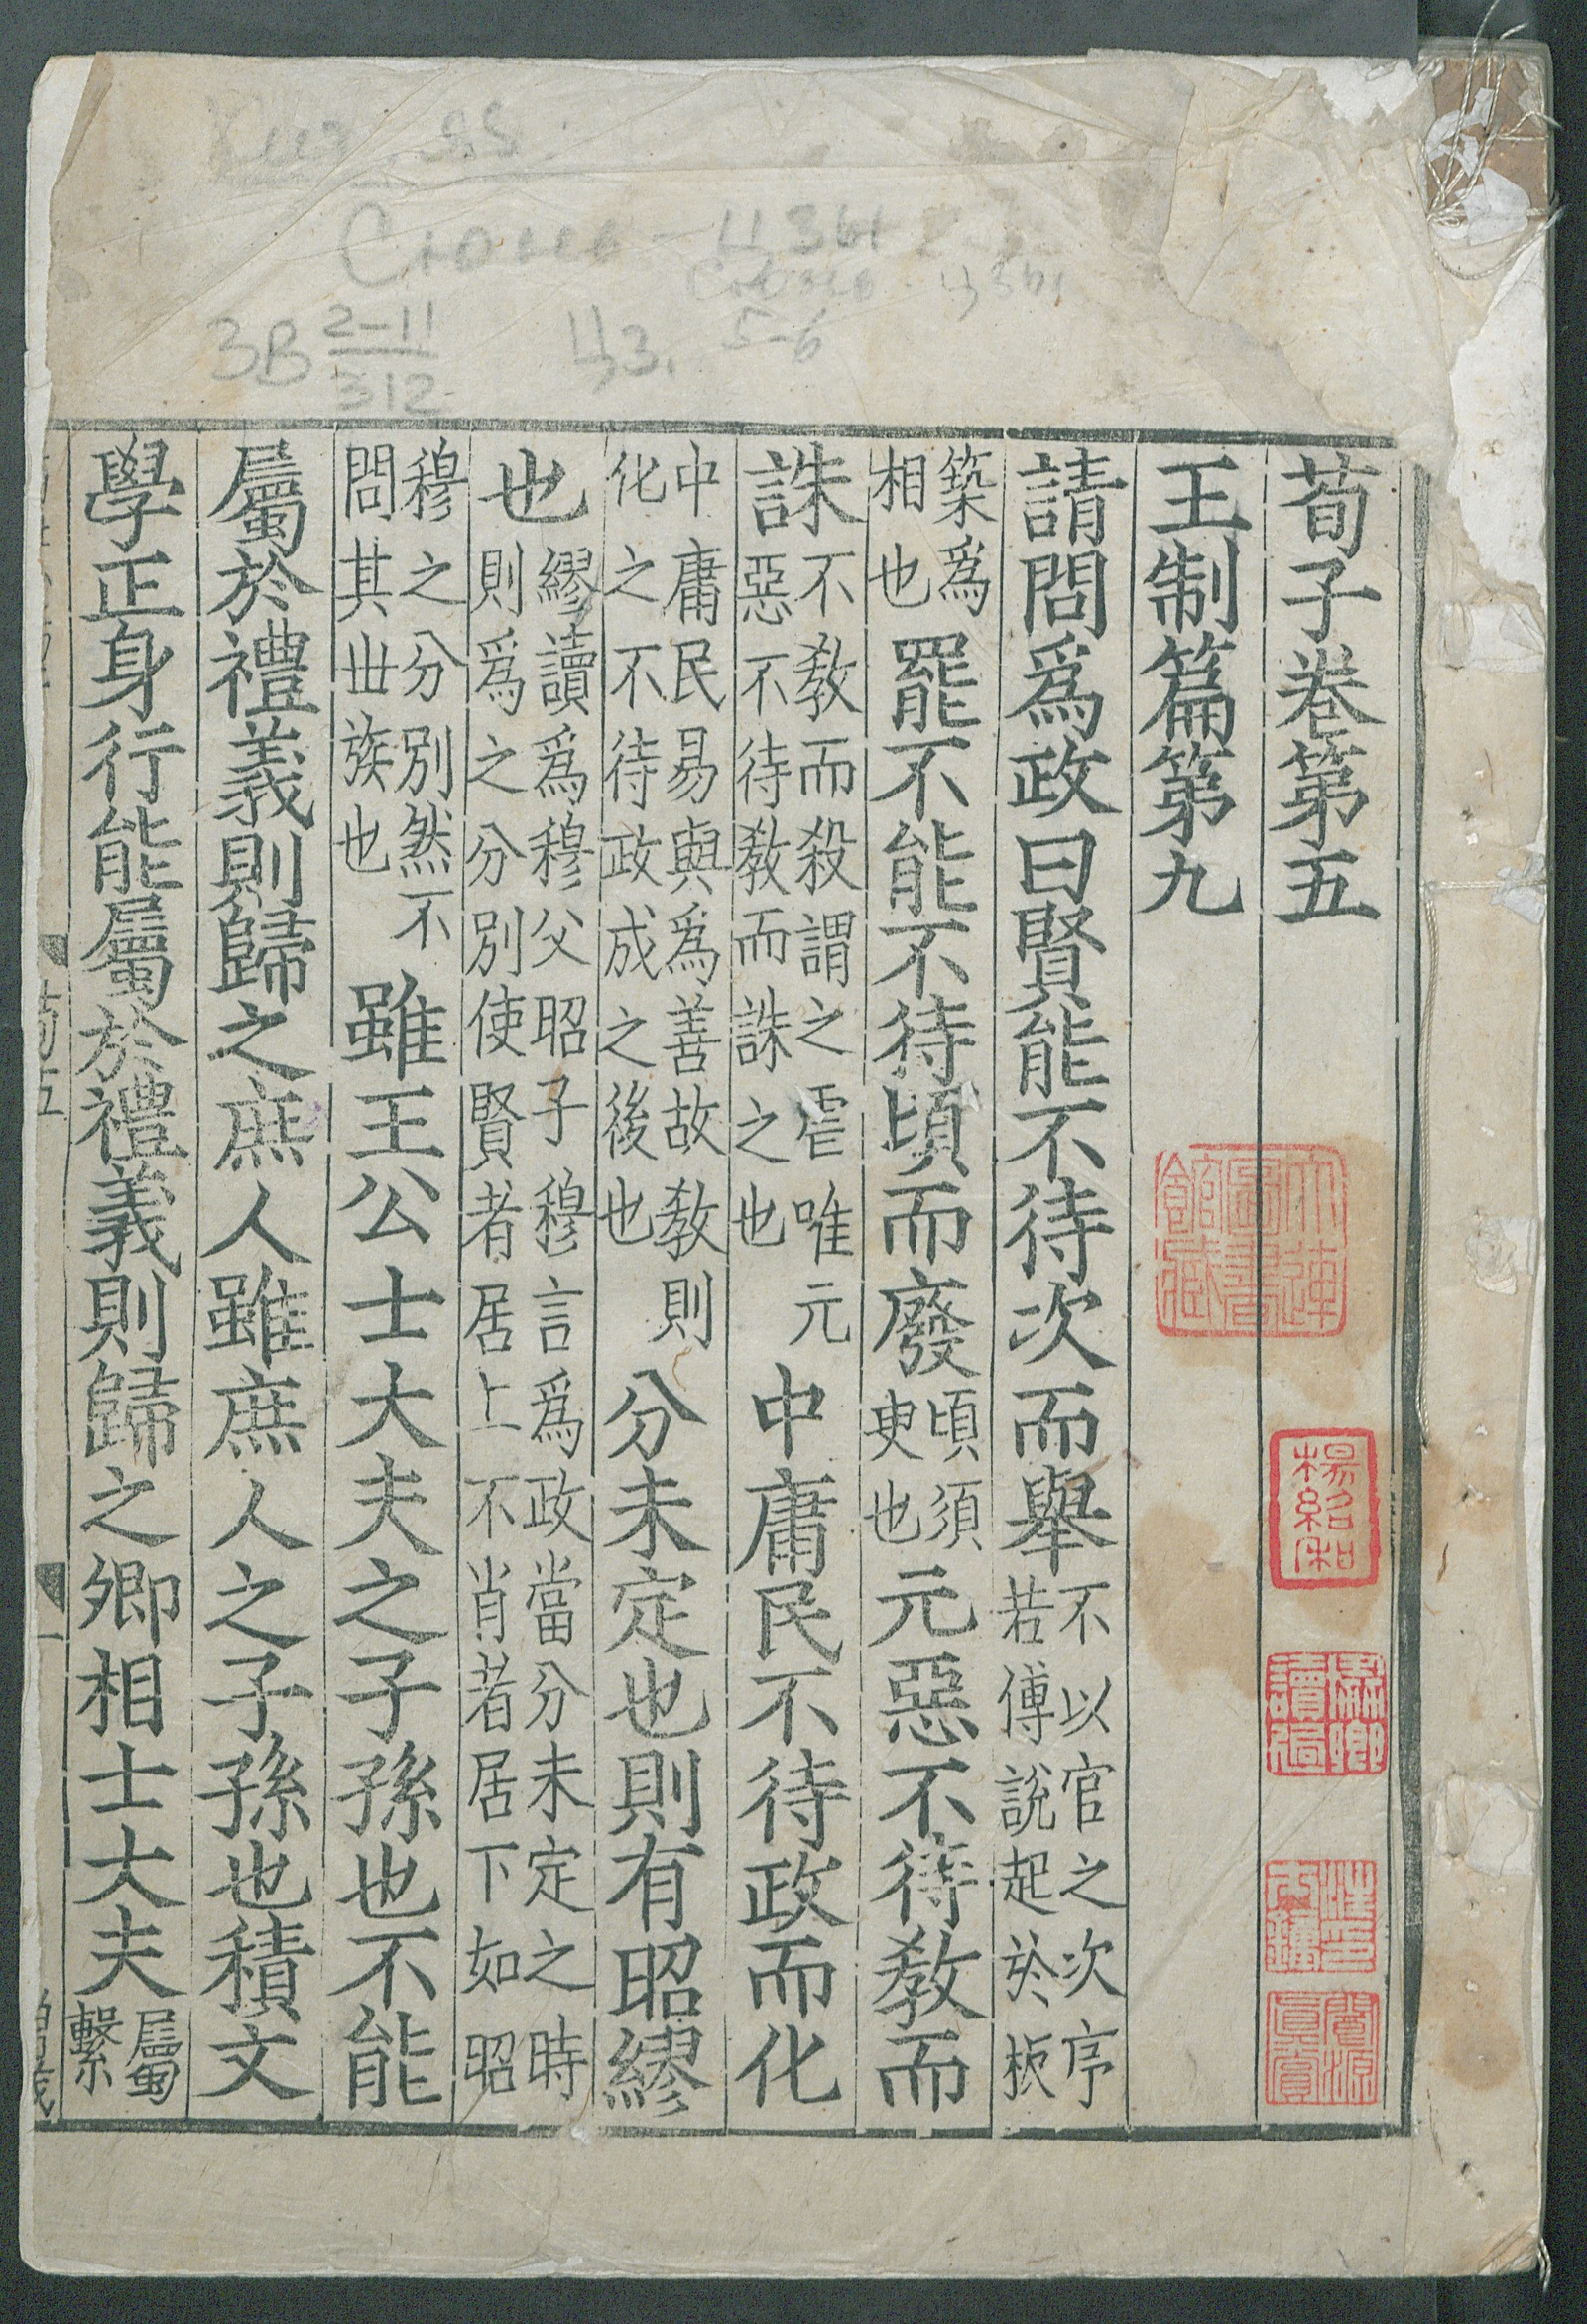 荀子卷第五
王制篇第九
請問爲政曰賢能不待次而舉不以官之次序若傅說起於板
築爲相也罷不能不待頃而廢頃須臾也元惡不待敎而
誅不敎而殺謂之虐唯元惡不待敎而誅之也中庸民不待政而化
中庸民易與爲善故敎則化之不待政成之後也分未定也則有昭繆
也繆讀爲穆父昭子穆言爲政當分未定之時則爲之分別使賢者居上不肖者居下如昭
穆之分別然不問其丗族也雖王公士大夫之子孫也不能
屬於禮義則歸之庶人雖庶人之子孫也積文
學正身行能屬於禮義則歸之卿相士大夫屬繫
荀五
一
大連圖書館藏
楊紹和
讀過
眞賞
3В 2-11/312
Ц3. 5-6